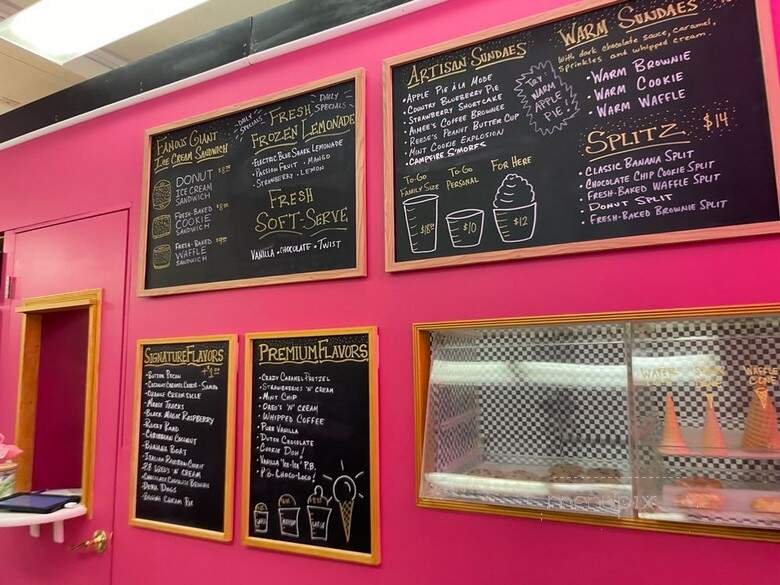 Famous Giant
Ice Cream Sandwich
Donut
Ice Cream
Sandwich
Fresh-Baked
Cookie
Sandwich
Fresh-Baked
Waffle
Sandwich
Daily
Specials
Fresh
Frozen Lemonade
Daily
Specials
Electric Blue Shark Lemonade
Passion Fruit • Mango
Strawberry • Lemon
Fresh
Soft-Serve
Vanilla • Chocolate • Twist
Artisan Sundaes
• Apple Pie À La Mode
• Country Blueberry Pie
• Strawberry Shortcake
• Aimee's Coffee Brownie
• Reese's Peanut Butter Cup
• Mint Cookie Explosion
• Campfire S'mores
Try
Warm
Apple
Pie!
To-Go
Family Size
To-Go
Personal
$10
For Here
$12
Warm Sundaes
With dark chocolate sauce, caramel,
sprinkles and whipped cream.
• Warm Brownie
• Warm Cookie
• Warm Waffle
Splitz $14
• Classic Banana Split
• Chocolate Chip Cookie Split
• Fresh-Baked Waffle Split
• Donut Split
• Fresh-Baked Brownie Split
Signature Flavors
- Coconut Caramel Cookie - Samoa
- Orange Creamsicle
- Moose Tracks
- Black Magic Raspberry
- Rocky Road
- Caribbean Coconut
- Banana Boat
- Italian Rainbow Cookie
- Chocolate Chocolate Brownie
- Devil Dogs
- Boston Cream Pie
Premium Flavors
- Crazy Caramel Pretzel
- Strawberries 'N' Cream
- Mint Chip
- Oreo's 'N' Cream
- Whipped Coffee
- Pure Vanilla
- Dutch Chocolate
- Cookie Doh!
- P.B. Choco-Loco!
Small
Medium
Large
Wafer
Sugar
Waffle
Cone
menupix